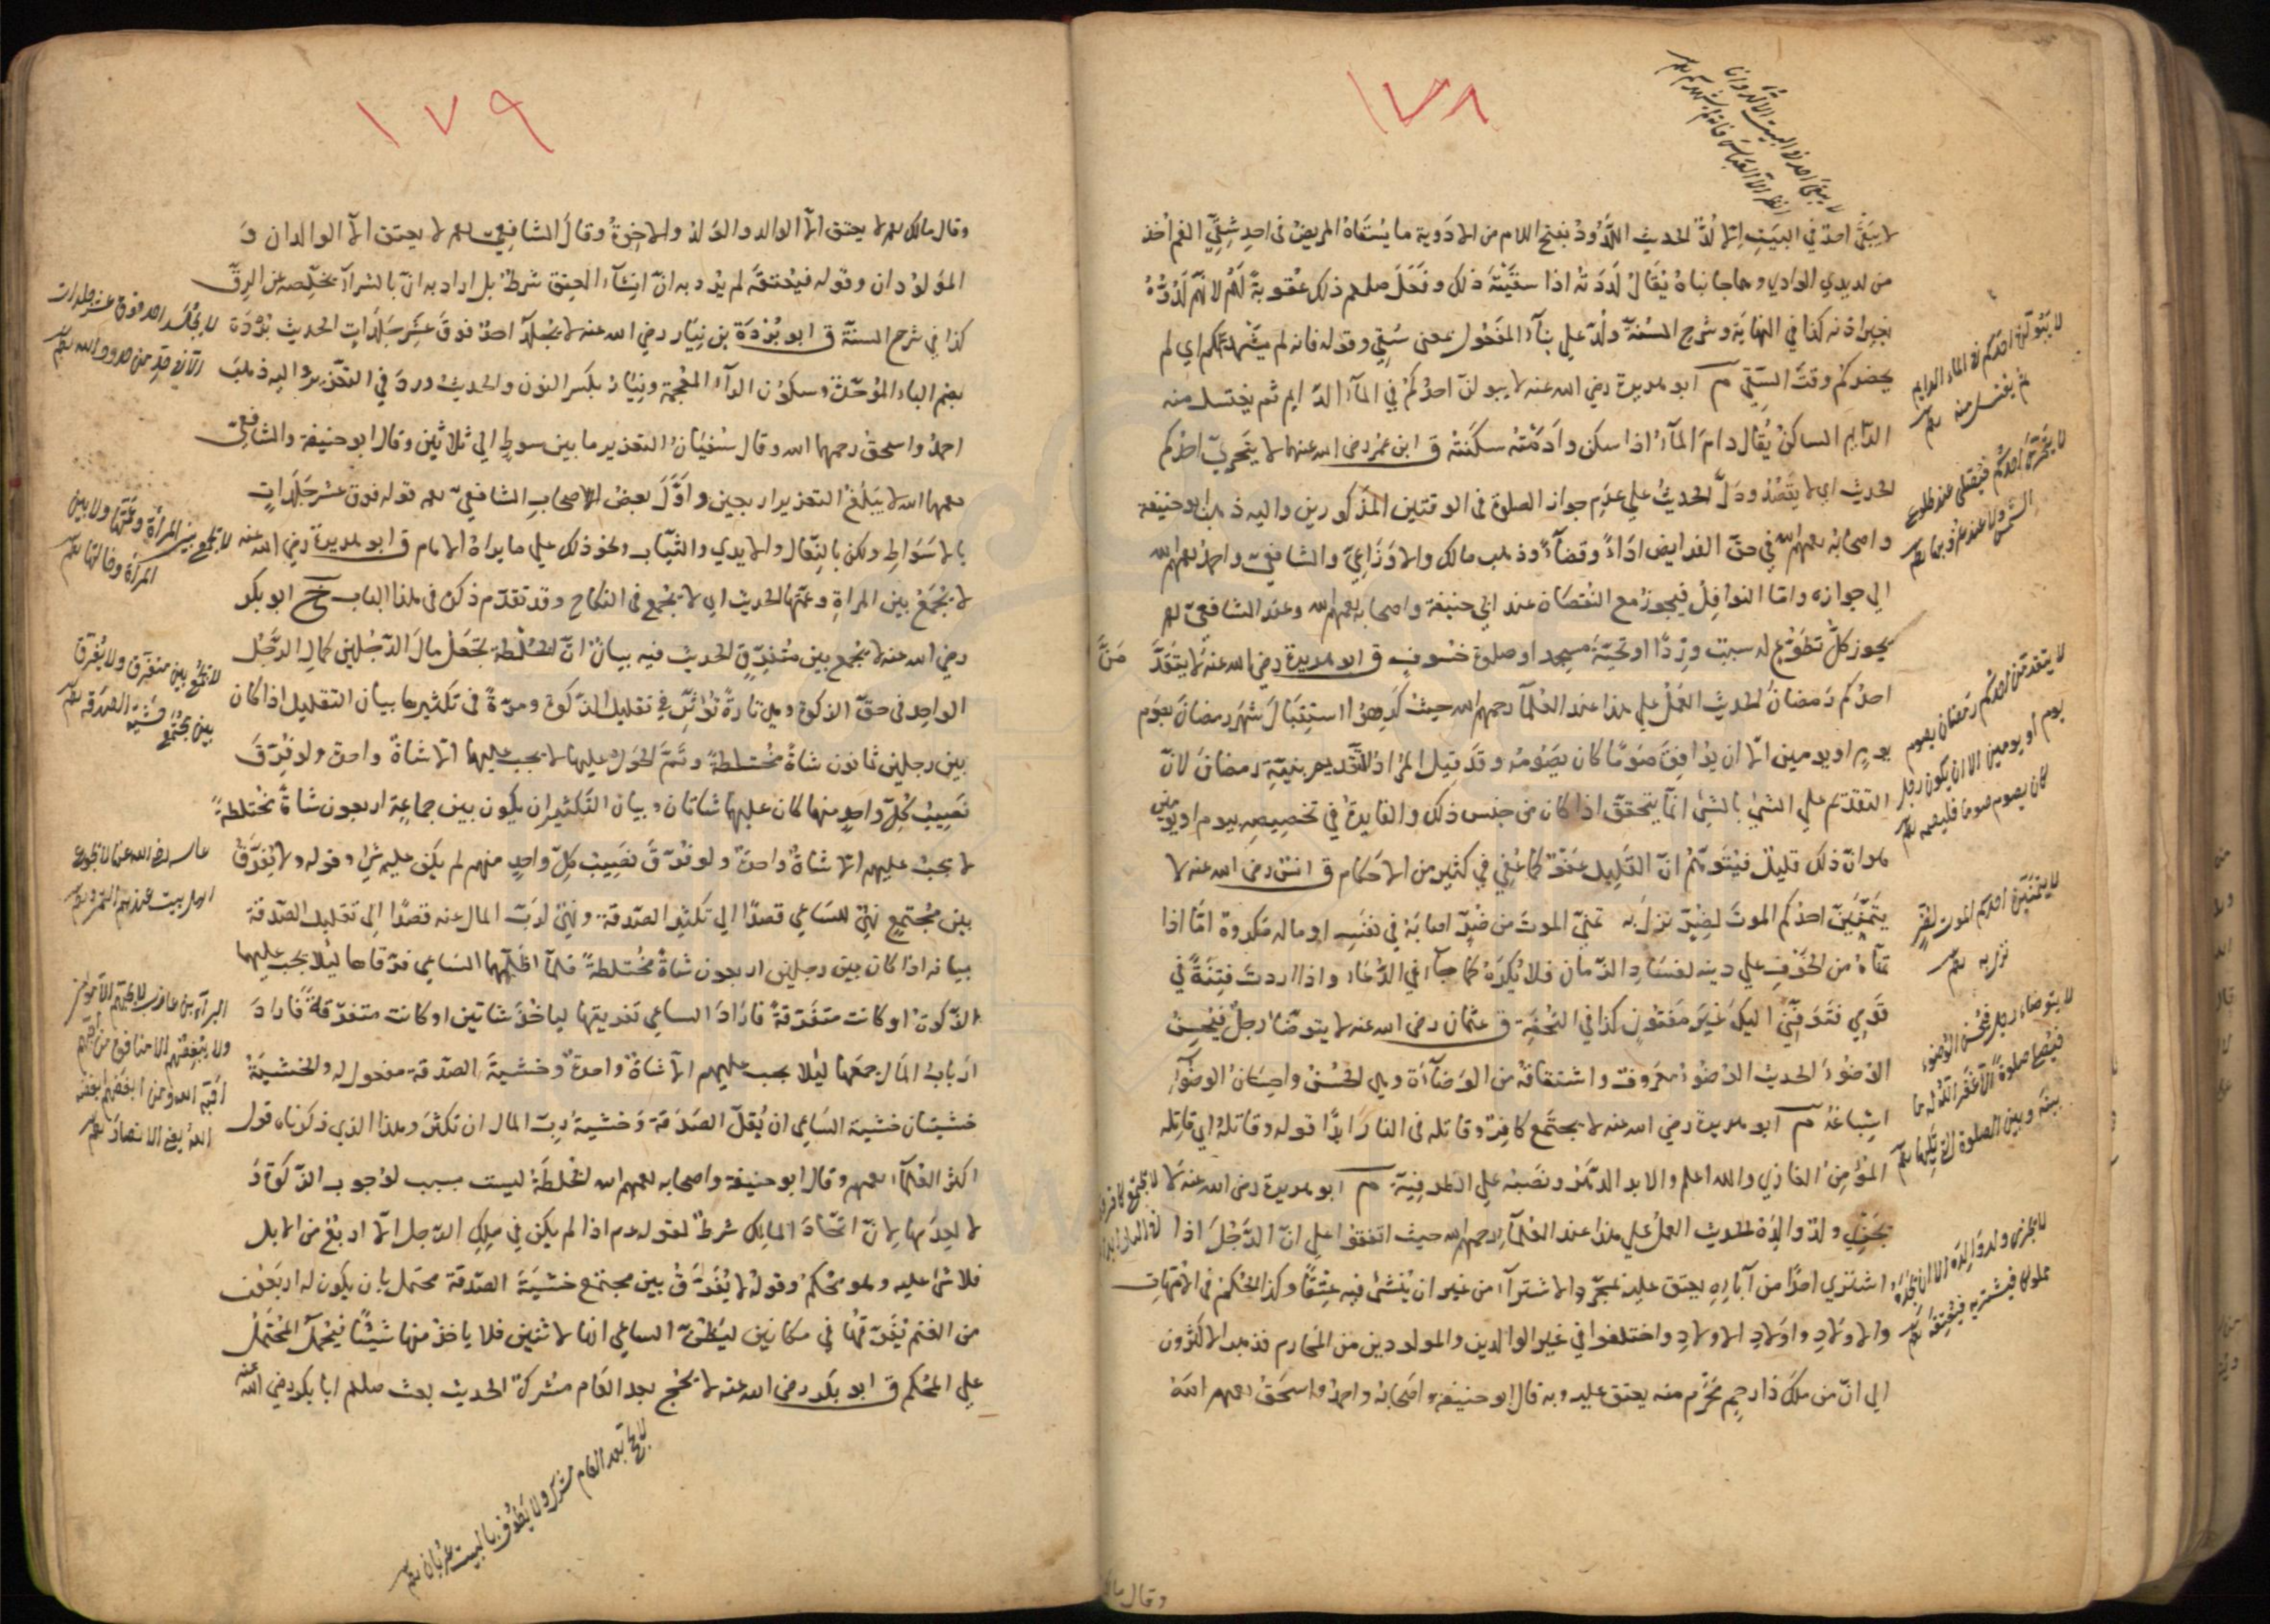 ١٧٨
لا يبقى احد في البيت الا لد وانا
انظر الا العباس فانه لم يشهدكم
لا يبقى احدٌ في البيت الا لُدّ الحديث اللَّدُود بفتح اللام من الادوية ما يُسقاه المريض في احد شِقَّي الفم اُخذ
من لديدي الوادي وهما جانباه يُقال لَدَدته اذا سقيته ذلك وفعل صلعم ذلك عقوبةً لهم لانهم لدّوه
بغير اذنه كذا في النهاية وشرح السنة ولُدّ على بناء المفعول بمعنى سُقِي وقوله فانه لم يشهدكم اي لم
يحضركم وقت السَّقي م ابو هريرة رضي الله عنه لا يبولنّ احدكم في الماء الدايم ثم يغتسل منه
الدايم الساكن يُقال دام الماء اذا سكن وادَمْته سكّنته ق ابن عمر رضي الله عنهما لا يتحرّى احدكم
الحديث اي لا يقصد ودلّ الحديث على عدم جواز الصلوة في الوقتين المذكورين واليه ذهب ابو حنيفة
واصحابه رحمهم الله في حق الفرايض اداءً وقضاءً وذهب مالك والاوزاعيّ والشافعيّ واحمد رحمهم الله
الى جوازه واما النوافل فيجوز مع النقصان عند ابي حنيفة واصحابه رحمهم الله وعند الشافعي رحمه
يجوز كلّ تطوّع له سبب ورِدًا او تحيّة مسجد او صلوة خسوف ق ابو هريرة رضي الله عنه لا يتقدّمنّ
احدكم رمضان الحديث العمل على هذا عند العلماء رحمهم الله حيث كرهوا استقبال شهر رمضان بصوم
يوم او يومين الا ان يوافق صومًا كان يصومه وقد قيل المراد التقديم بنيّة رمضان لانّ
التقدّم على الشيء بالشيء انما يتحقق اذا كان من جنس ذلك والفايدة في تخصيصه بيوم او يومين
هو انّ ذلك قليل فيُتوهّم انّ القليل عفو كما عُفي في كثير من الاحكام ق انس رضي الله عنه لا
يتمنّينّ احدكم الموت لضُرّ نزل به تمنّي الموت من ضُرّ اصابه في نفسه او ماله مكروه امّا اذا
تمنّاه من الخوف على دينه لفساد الزمان فلا يُكره كما جاء في الدعاء واذا اردت فتنةً في
قومي فتوفّني اليك غير مفتون كذا في التحفة ق عثمان رضي الله عنه لا يتوضّأ رجل فيحسن
الوضوء الحديث الوضوء معروف واشتقاقه من الوضاءة وهي الحُسن واحسان الوضوء
اسباغه م ابو هريرة رضي الله عنه لا يجتمع كافر وقاتله في النار ابدًا قوله وقاتله اي قاتله
المؤمن الغازي والله اعلم والابد الدهر ونصبه على الظرفية م ابو هريرة رضي الله عنه لا
يجزي ولد والده الحديث العمل على هذا عند العلماء رحمهم الله حيث اتفقوا على انّ الرجل اذا
اشترى احدًا من آبائه يعتق عليه بمجرّد الاشتراء من غير ان يُنشئ فيه عتقًا وكذا الحكم في الامهات
والاولاد واولاد الاولاد واختلفوا في غير الوالدين والمولودين من المحارم فذهب الاكثرون
الى انّ من ملك ذا رحم محرّم منه يعتق عليه وبه قال ابو حنيفة واصحابه واحمد واسحق رحمهم الله
لا يبولن احدكم في الماء الدايم
ثم يغتسل منه
لا يتحرى احدكم فيصلي عند طلوع
الشمس ولا عند غروبها
لا يتقدمن احدكم رمضان بصوم
يوم او يومين الا ان يكون رجل
كان يصوم صوما فليصمه
لا يتمنين احدكم الموت لضر
نزل به
لا يتوضاء رجل فيحسن الوضوء
فيصلي صلوة الا غفر الله له ما
بينه وبين الصلوة التي يليها
لا يجتمع كافر وقاتله
في النار ابدا
لا يجزي ولد والده الا ان يجده
مملوكا فيشتريه فيعتقه
وقال مالك
١٧٩
وقال مالك رحمه لا يعتق الا الوالد والولد والاخوة وقال الشافعي رحمه لا يعتق الا الوالدان و
المولودان وقوله فيعتقه لم يُرد به انّ انشاء العتق شرط بل اراد به انّ بالشراء يخلّصه عن الرقّ
كذا في شرح السنة ق ابو بُرْدة بن نيار رضي الله عنه لا يُجلد احد فوق عشر جلدات الحديث بُرْدة
بضم الباء الموحّدة وسكون الراء المعجمة ونيار بكسر النون والحديث ورد في التعزير واليه ذهب
احمد واسحق رحمهما الله وقال سفيان التعزير ما بين سوط الى ثلاثين وقال ابو حنيفة والشافعيّ
رحمهما الله لا يبلغ التعزير اربعين واوّل بعض اصحاب الشافعيّ رحمه قوله فوق عشر جلدات
بالاسواط ولكن بالنعال والايدي والثياب ونحو ذلك على ما يراه الامام ق ابو هريرة رضي الله عنه
لا يُجمع بين المراة وعمّتها الحديث اي لا يُجمع في النكاح وقد تقدّم ذكره في هذا الباب خ ابو بكر
رضي الله عنه لا يُجمع بين متفرّق الحديث فيه بيان انّ الخُلطة تجعل مال الرجلين كمال الرجل
الواحد في حق الزكوة وهي تارةً تؤثّر في تقليل الزكوة ومرّةً في تكثيرها بيان التقليل اذا كان
بين رجلين ثمانون شاةً مختلطةً وتمّ الحول عليها لا يجب عليهما الا شاة واحدة ولو فُرّق
نصيب كلّ واحد منهما كان عليهما شاتان وبيان التكثير ان يكون بين جماعة اربعون شاةً مختلطةً
لا يجب عليهم الا شاة واحدة ولو تفرّق نصيب كلّ واحد منهم لم يكن عليهم شيء وقوله ولا يُفرّق
بين مجتمع نهيٌ للساعي قصدًا الى تكثير الصدقة ونهيٌ لربّ المال عنه قصدًا الى تقليل الصدقة
بيانه اذا كان بين رجلين اربعون شاةً مختلطةً فلما اظلّهما الساعي فرّقاها لئلا يجب عليهما
الزكوة او كانت متفرّقةً فاراد الساعي تفريقها لياخذ شاتين او كانت متفرّقةً فاراد
ارباب المال جمعها لئلا يجب عليهم الا شاة واحدة وخشية الصدقة مفعول له والخشية
خشيتان خشية الساعي ان يُقلّ الصدقة وخشية ربّ المال ان تكثر وهذا الذي ذكرناه قول
اكثر العلماء رحمهم وقال ابو حنيفة واصحابه رحمهم الله الخُلطة ليست بسبب لوجوب الزكوة و
لا لعدمها لانّ اتّحاد المالك شرط لقوله عم اذا لم يكن في ملك الرجل الا اربع من الابل
فلا شيء عليه وهو محكم وقوله لا يُفرّق بين مجتمع خشية الصدقة محتمل بان يكون له اربعون
من الغنم يُفرّقها في مكانين ليظنّ الساعي انها لاثنين فلا ياخذ منها شيئًا فيُحمل المحتمل
على المحكم ق ابو بكر رضي الله عنه لا يحج بعد العام مشرك الحديث بعث صلعم ابا بكر رضي الله عنه
لا يجلد احد فوق عشر جلدات
الا في حد من حدود الله
لا يجمع بين المرأة وعمتها ولا بين
المرأة وخالتها
لا يجمع بين متفرق ولا يفرق
بين مجتمع خشية الصدقة
عايشة رضي الله عنها لا يجوع
اهل بيت عندهم التمر
البراء بن عازب لا يحبهم الا مؤمن
ولا يبغضهم الا منافق من احبهم
احبه الله ومن ابغضهم ابغضه
الله يعني الانصار
لا يحج بعد العام مشرك ولا يطوف بالبيت عريان